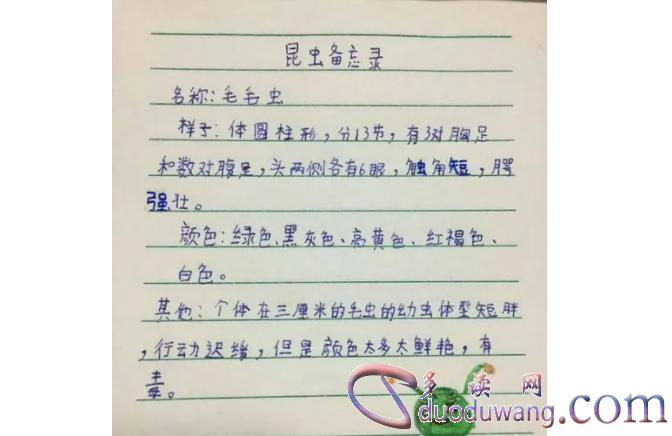 昆虫备忘录
名称:毛毛虫
样子:体圆柱形,分13节,有3对胸足
和数对腹足,头两侧各有6眼,触角短,腭
强壮。
颜色:绿色、黑灰色、亮黄色、红褐色、
白色。
其他:个体在三厘米的毛虫的幼虫体型短胖
,行动迟缓,但是颜色太多太鲜艳,有
毒。
多读网
duoduwang.com